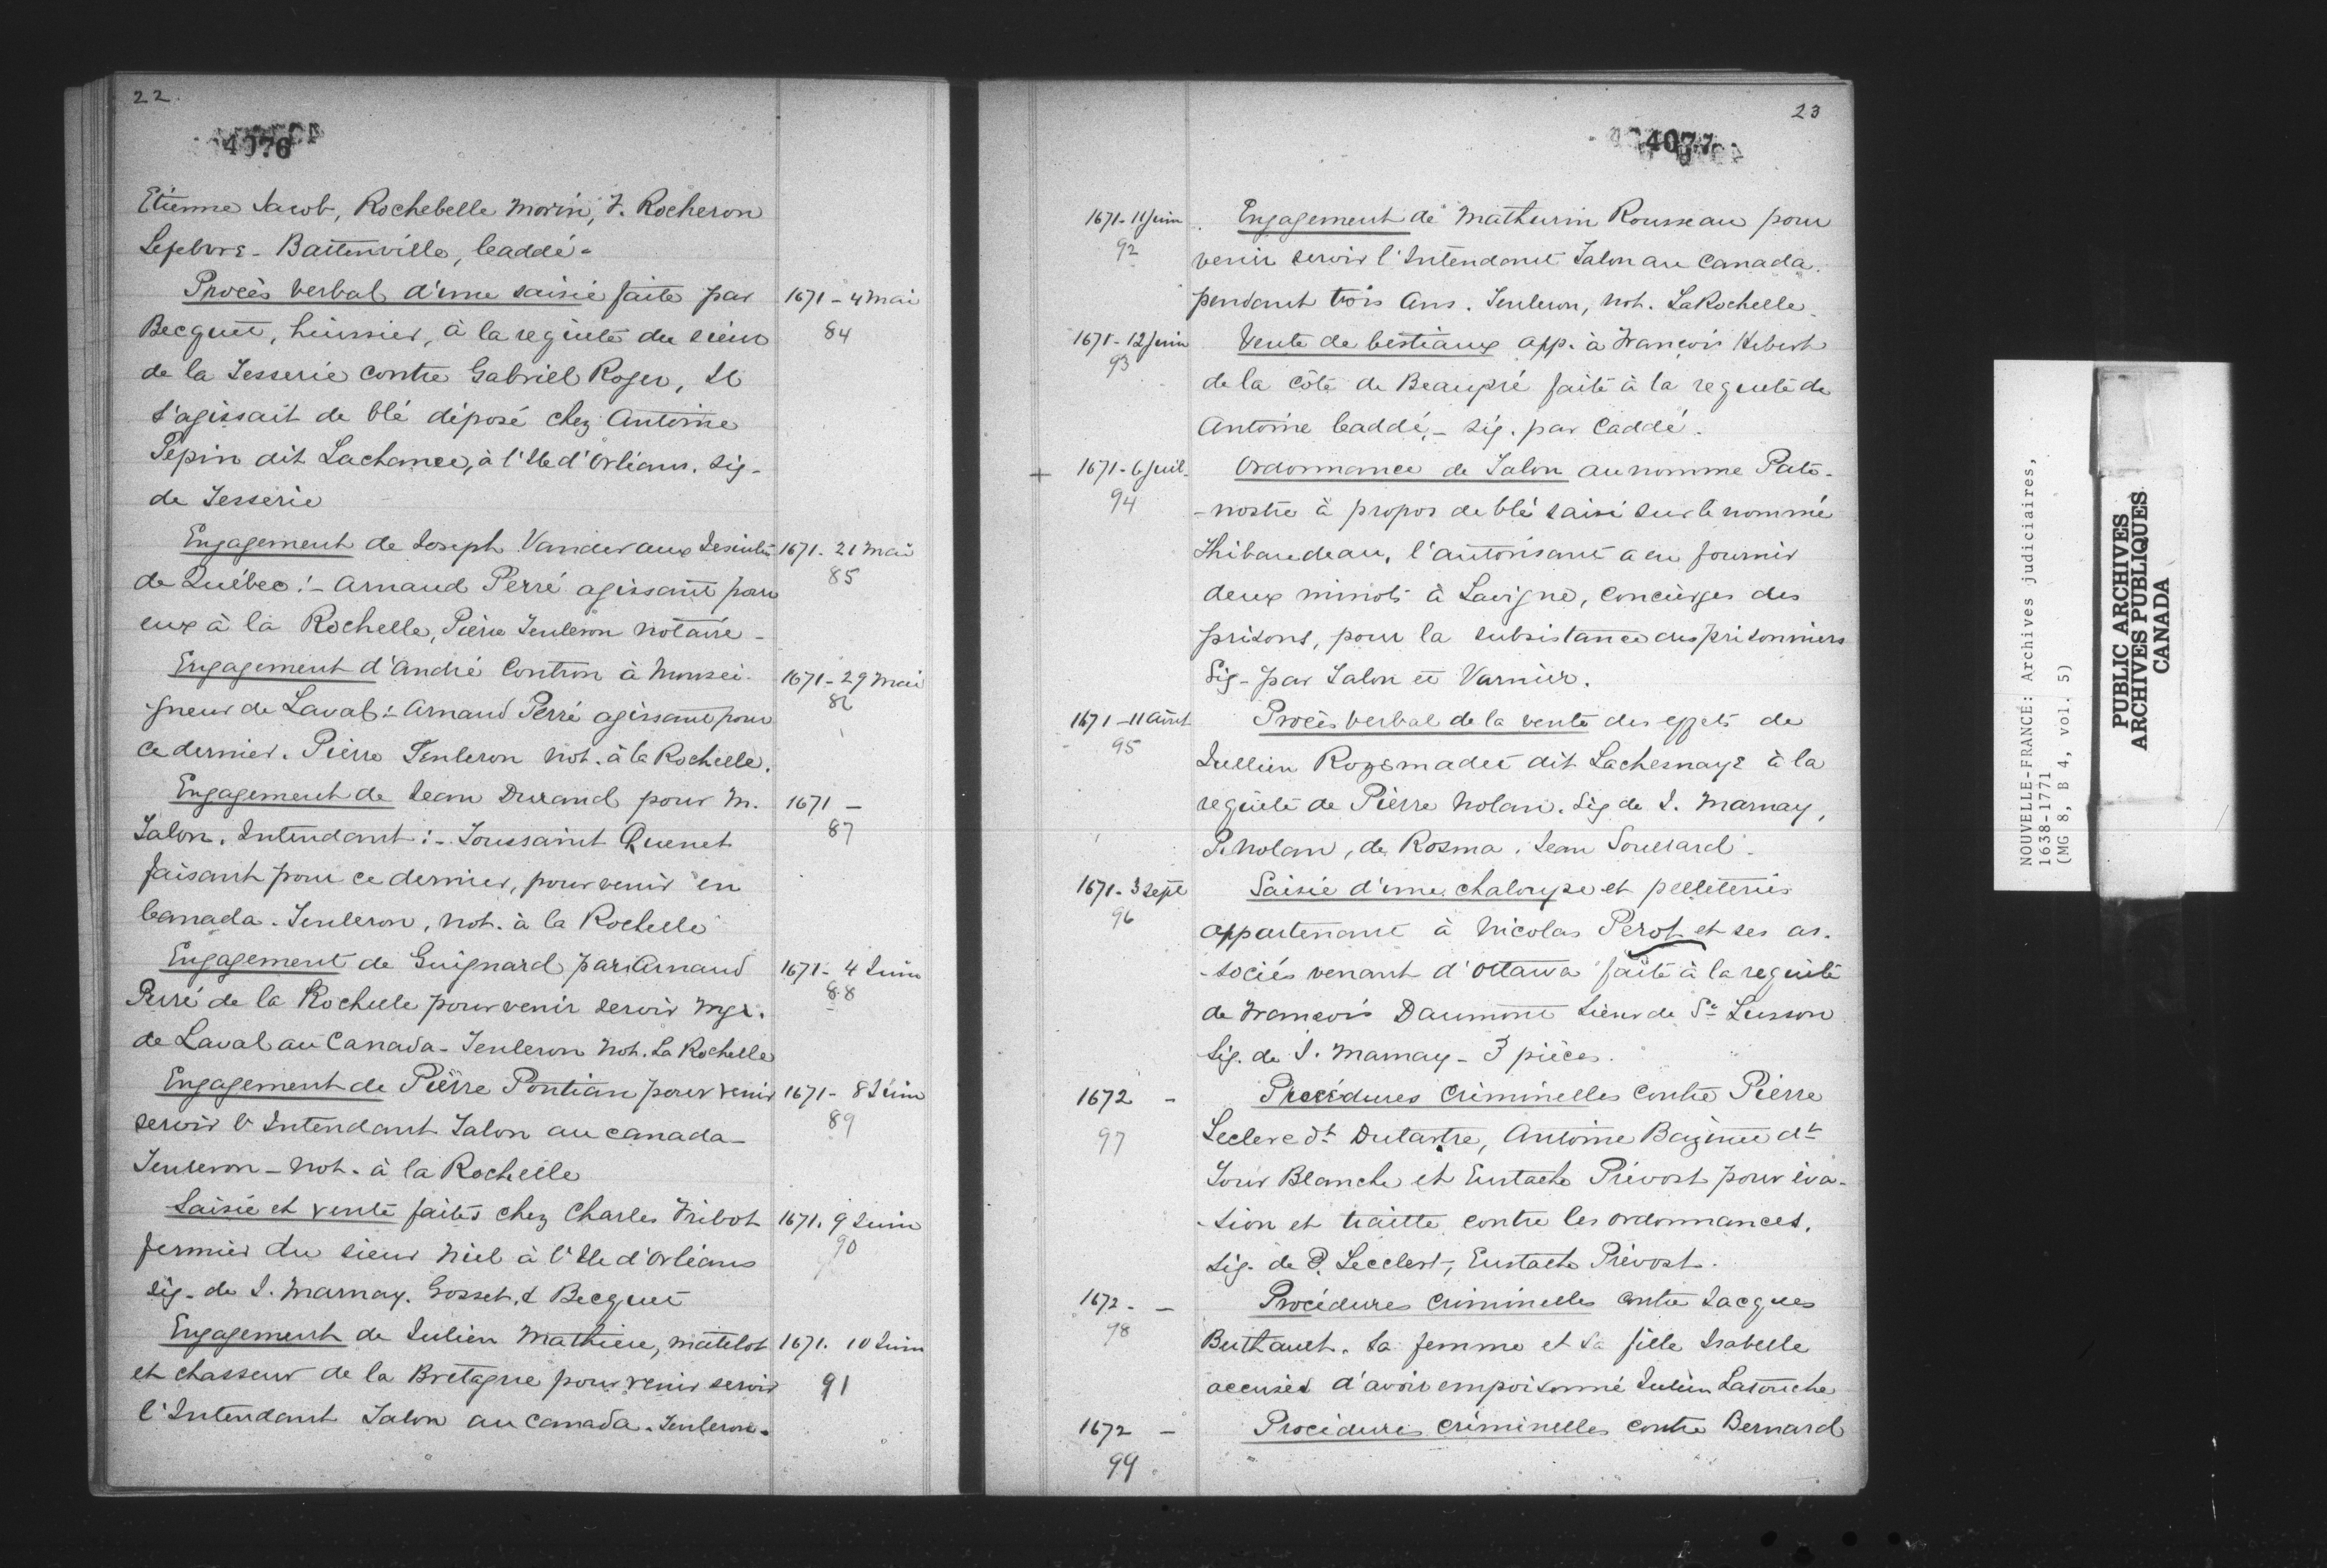 22.
4076
Etienne Jacob, Rochebelle Morin, J. Rocheron
Lefebvre - Battenville, Caddé -
Procès verbal d'une saisie faite par 1671 - 4 Mai
Becquet, huissier, à la requète du sieur 84
de la Tesserie contre Gabriel Roger, Il
s'agissait de blé déposé chez Antoine
Pépin dit Lachance, à l'Ile d'Orléans. Sig-
de Tesserie
Engagement de Joseph Vandevaux 1671. 21 Mai
de Québec:- Arnaud Perré agissant pour 85
eux à la Rochelle, Pierre Teuleron notaire -
Engagement d'André Contron à Monsei- 1671 - 29 Mai
gneur de Laval:- Arnaud Perré agissant pour 86
ce dernier. Pierre Teuleron not. à la Rochelle.
Engagement de Jean Durand pour M. 1671 -
Talon, Intendant:- Toussaint Quenet 87
faisant pour ce dernier, pour venir en
Canada. Teuleron, not. à la Rochelle
Engagement de Guignard par Arnaud 1671 - 4 Juin
Perré de la Rochelle pour venir servir Mgr. 88
de Laval au Canada - Teuleron Not. La Rochelle
Engagement de Pierre Pontian pour venir 1671 - 8 Juin
servir l'Intendant Talon au Canada - 89
Teuleron - Not. à la Rochelle
Saisie et vente faites chez Charles Fribot 1671. 9 Juin
fermier du sieur Niel à l'Ile d'Orléans 90
sig. de J. Marnay. Gosset, & Becquet
Engagement de Julien Mathieu, matelot 1671. 10 Juin
et chasseur de la Bretagne pour venir servir 91
l'Intendant Talon au Canada. Teuleron.
23
4077
1671 - 11 Juin Engagement de Mathurin Rousseau pour
92 venir servir l'Intendant Talon au Canada.
pendant trois ans. Teuleron, not. La Rochelle.
1671 - 12 Juin Vente de bestiaux app. à François Hebert
93 de la côte de Beaupré faite à la requète de
Antoine Caddé, - sig. par Caddé.
+ 1671 - 6 Juil. Ordonnance de Talon au nomme Pate-
94 -nostre à propos de blé saisi sur le nommé
Thibaudeau, l'autorisant a en fournir
deux minots à Lavigne, Concierges des
prisons, pour la subsistance des prisonniers
Sig - par Talon et Varnier.
1671 - 11 Août Procès verbal de la vente des effets de
95 Jullien Rozemadec dit Lachesnaye à la
requète de Pierre Nolan. Sig de J. Marnay,
P. Nolan, de Rosma. Jean Soullard -
1671 - 3 Sept Saisie d'une chaloupe et pelleteries
96 appartenant à Nicolas Perot et ses as-
-sociés venant d'Ottawa faite à la requète
de François Daumont Sieur de St Lusson
Sig. de J. Marnay - 3 pièces.
1672 - Procédures Criminelles contre Pierre
97 Leclerc dt Dutartre, Antoine dt
Tour Blanche et Eustache Prévost pour éva-
-sion et traitte contre les ordonnances.
Sig. de P. Lecclert, Eustache Prévost.
1672 - - Procédures Criminelles contre Jacques
98 Buthauet. Sa femme et sa fille Isabelle
accusés d'avoir empoisonné Julien Latouche
1672 - Procédures Criminelles contre Bernard
99
NOUVELLE-FRANCE: Archives judiciaires,
1638-1771
(MG 8, B 4, vol. 5)
PUBLIC ARCHIVES
ARCHIVES PUBLIQUES
CANADA